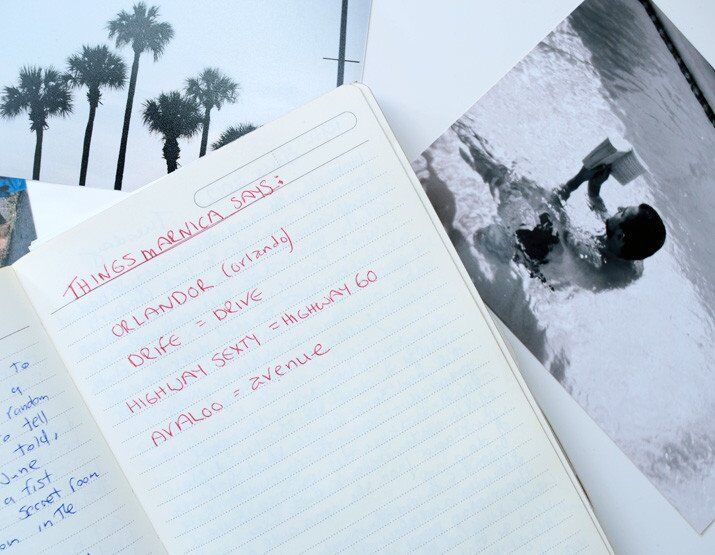 to
a
random
to tell
told,
June
a fist
secret room
on in the
THINGS MARNICA SAYS:
ORLANDOR (orlando)
DRIFE = DRIVE
HIGHWAY SEXTY = HIGHWAY 60
AVALOO = avenue